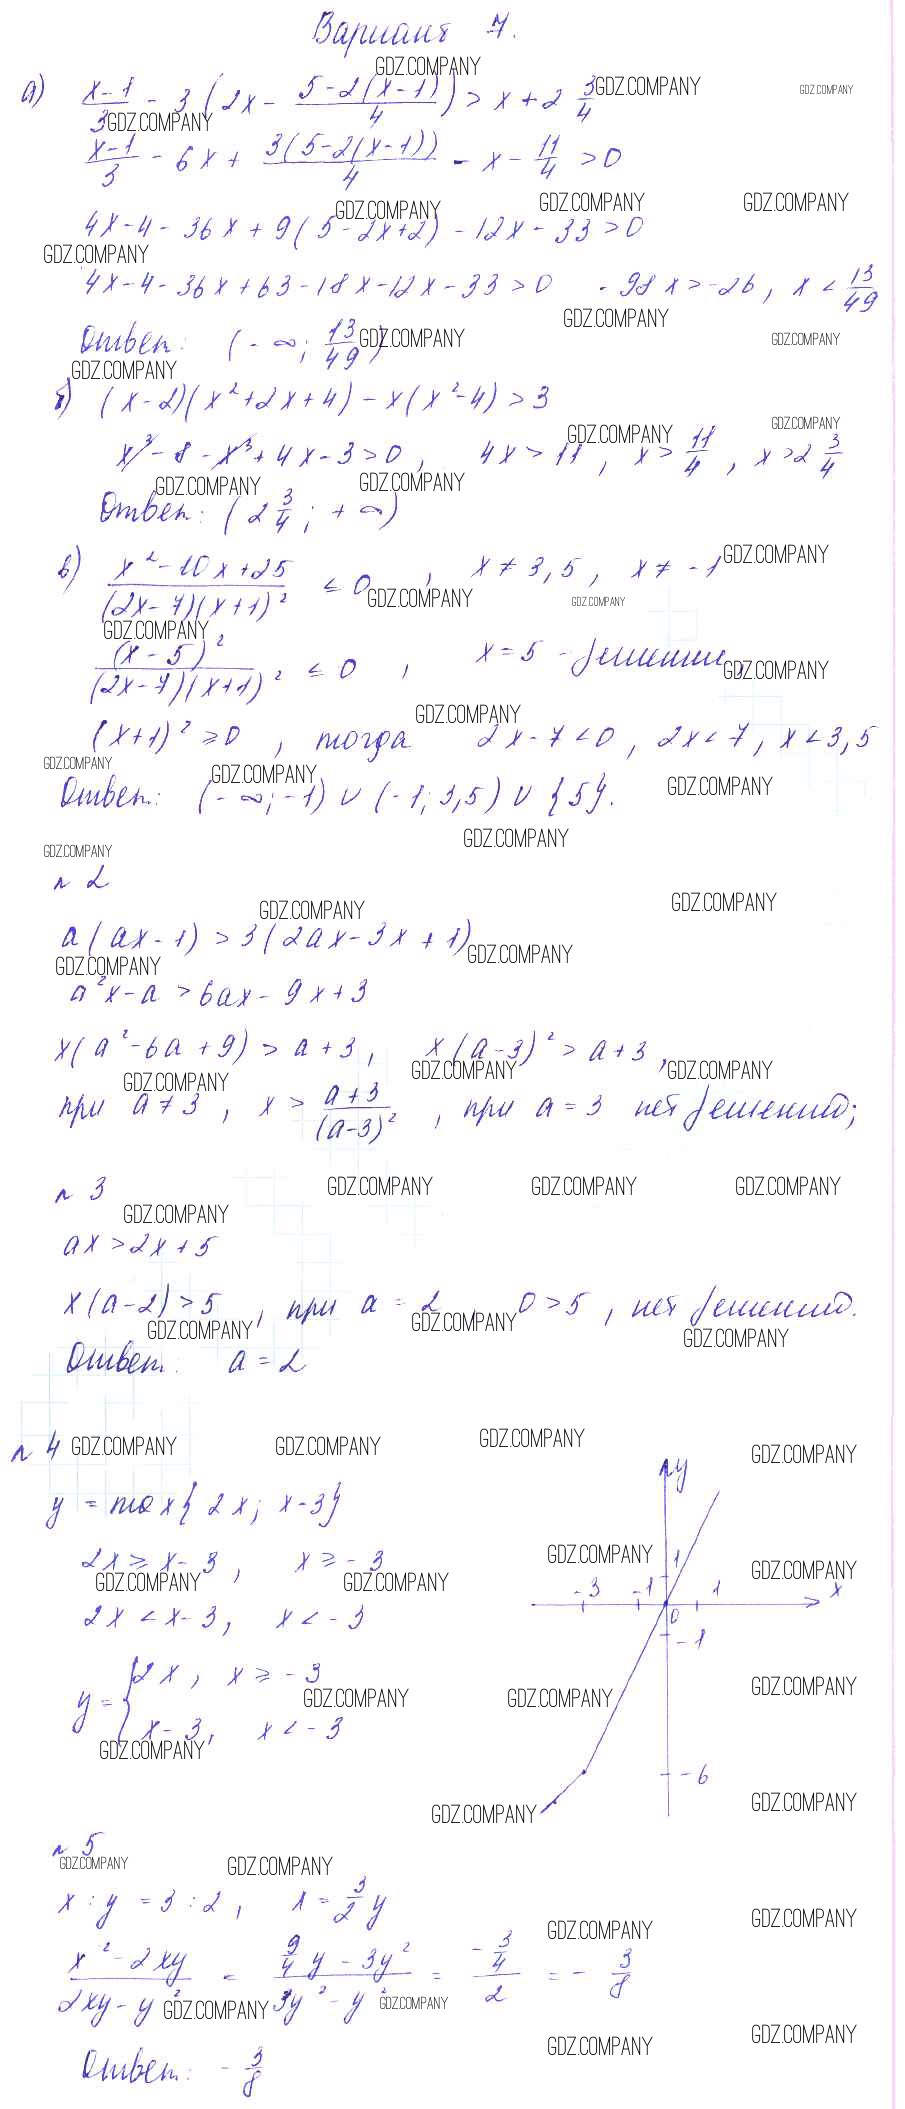 Вариант 7.
а) (x-1)/3 - 3(2x - (5-2(x-1))/4) > x + 2 3/4
(x-1)/3 - 6x + 3(5-2(x-1))/4 - x - 11/4 > 0
4x-4-36x+9(5-2x+2)-12x-33>0
4x-4-36x+63-18x-12x-33>0 -98x>-26, x < 13/49
Ответ: (-∞; 13/49)
б) (x-2)(x²+2x+4)-x(x²-4)>3
x³-8-x³+4x-3>0, 4x>11, x > 11/4, x>2 3/4
Ответ: (2 3/4; +∞)
в) (x²-10x+25)/((2x-7)(x+1)²) ≤ 0, x≠3,5, x≠-1
(x-5)²/((2x-7)(x+1)²) ≤ 0, x=5 - решение,
(x+1)²≥0, тогда 2x-7<0, 2x<7, x<3,5
Ответ: (-∞;-1)∪(-1;3,5)∪{5}.
n 2
a(ax-1)>3(2ax-3x+1)
a²x-a>6ax-9x+3
x(a²-6a+9)>a+3, x(a-3)²>a+3,
при a≠3, x > (a+3)/(a-3)², при a=3 нет решений;
n 3
ax>2x+5
x(a-2)>5, при a=2 0>5, нет решений.
Ответ: a=2
n 4
y = max{2x; x-3}
2x≥x-3, x≥-3
2x<x-3, x<-3
y = { 2x, x≥-3
x-3, x<-3
y
1
-3 -1 1 x
0
-1
-6
n 5
x:y=3:2, x = 3/2 y
(x²-2xy)/(2xy-y²) = (9/4 y - 3y²)/(3y²-y²) = (-3/4)/2 = - 3/8
Ответ: - 3/8
GDZ.COMPANY